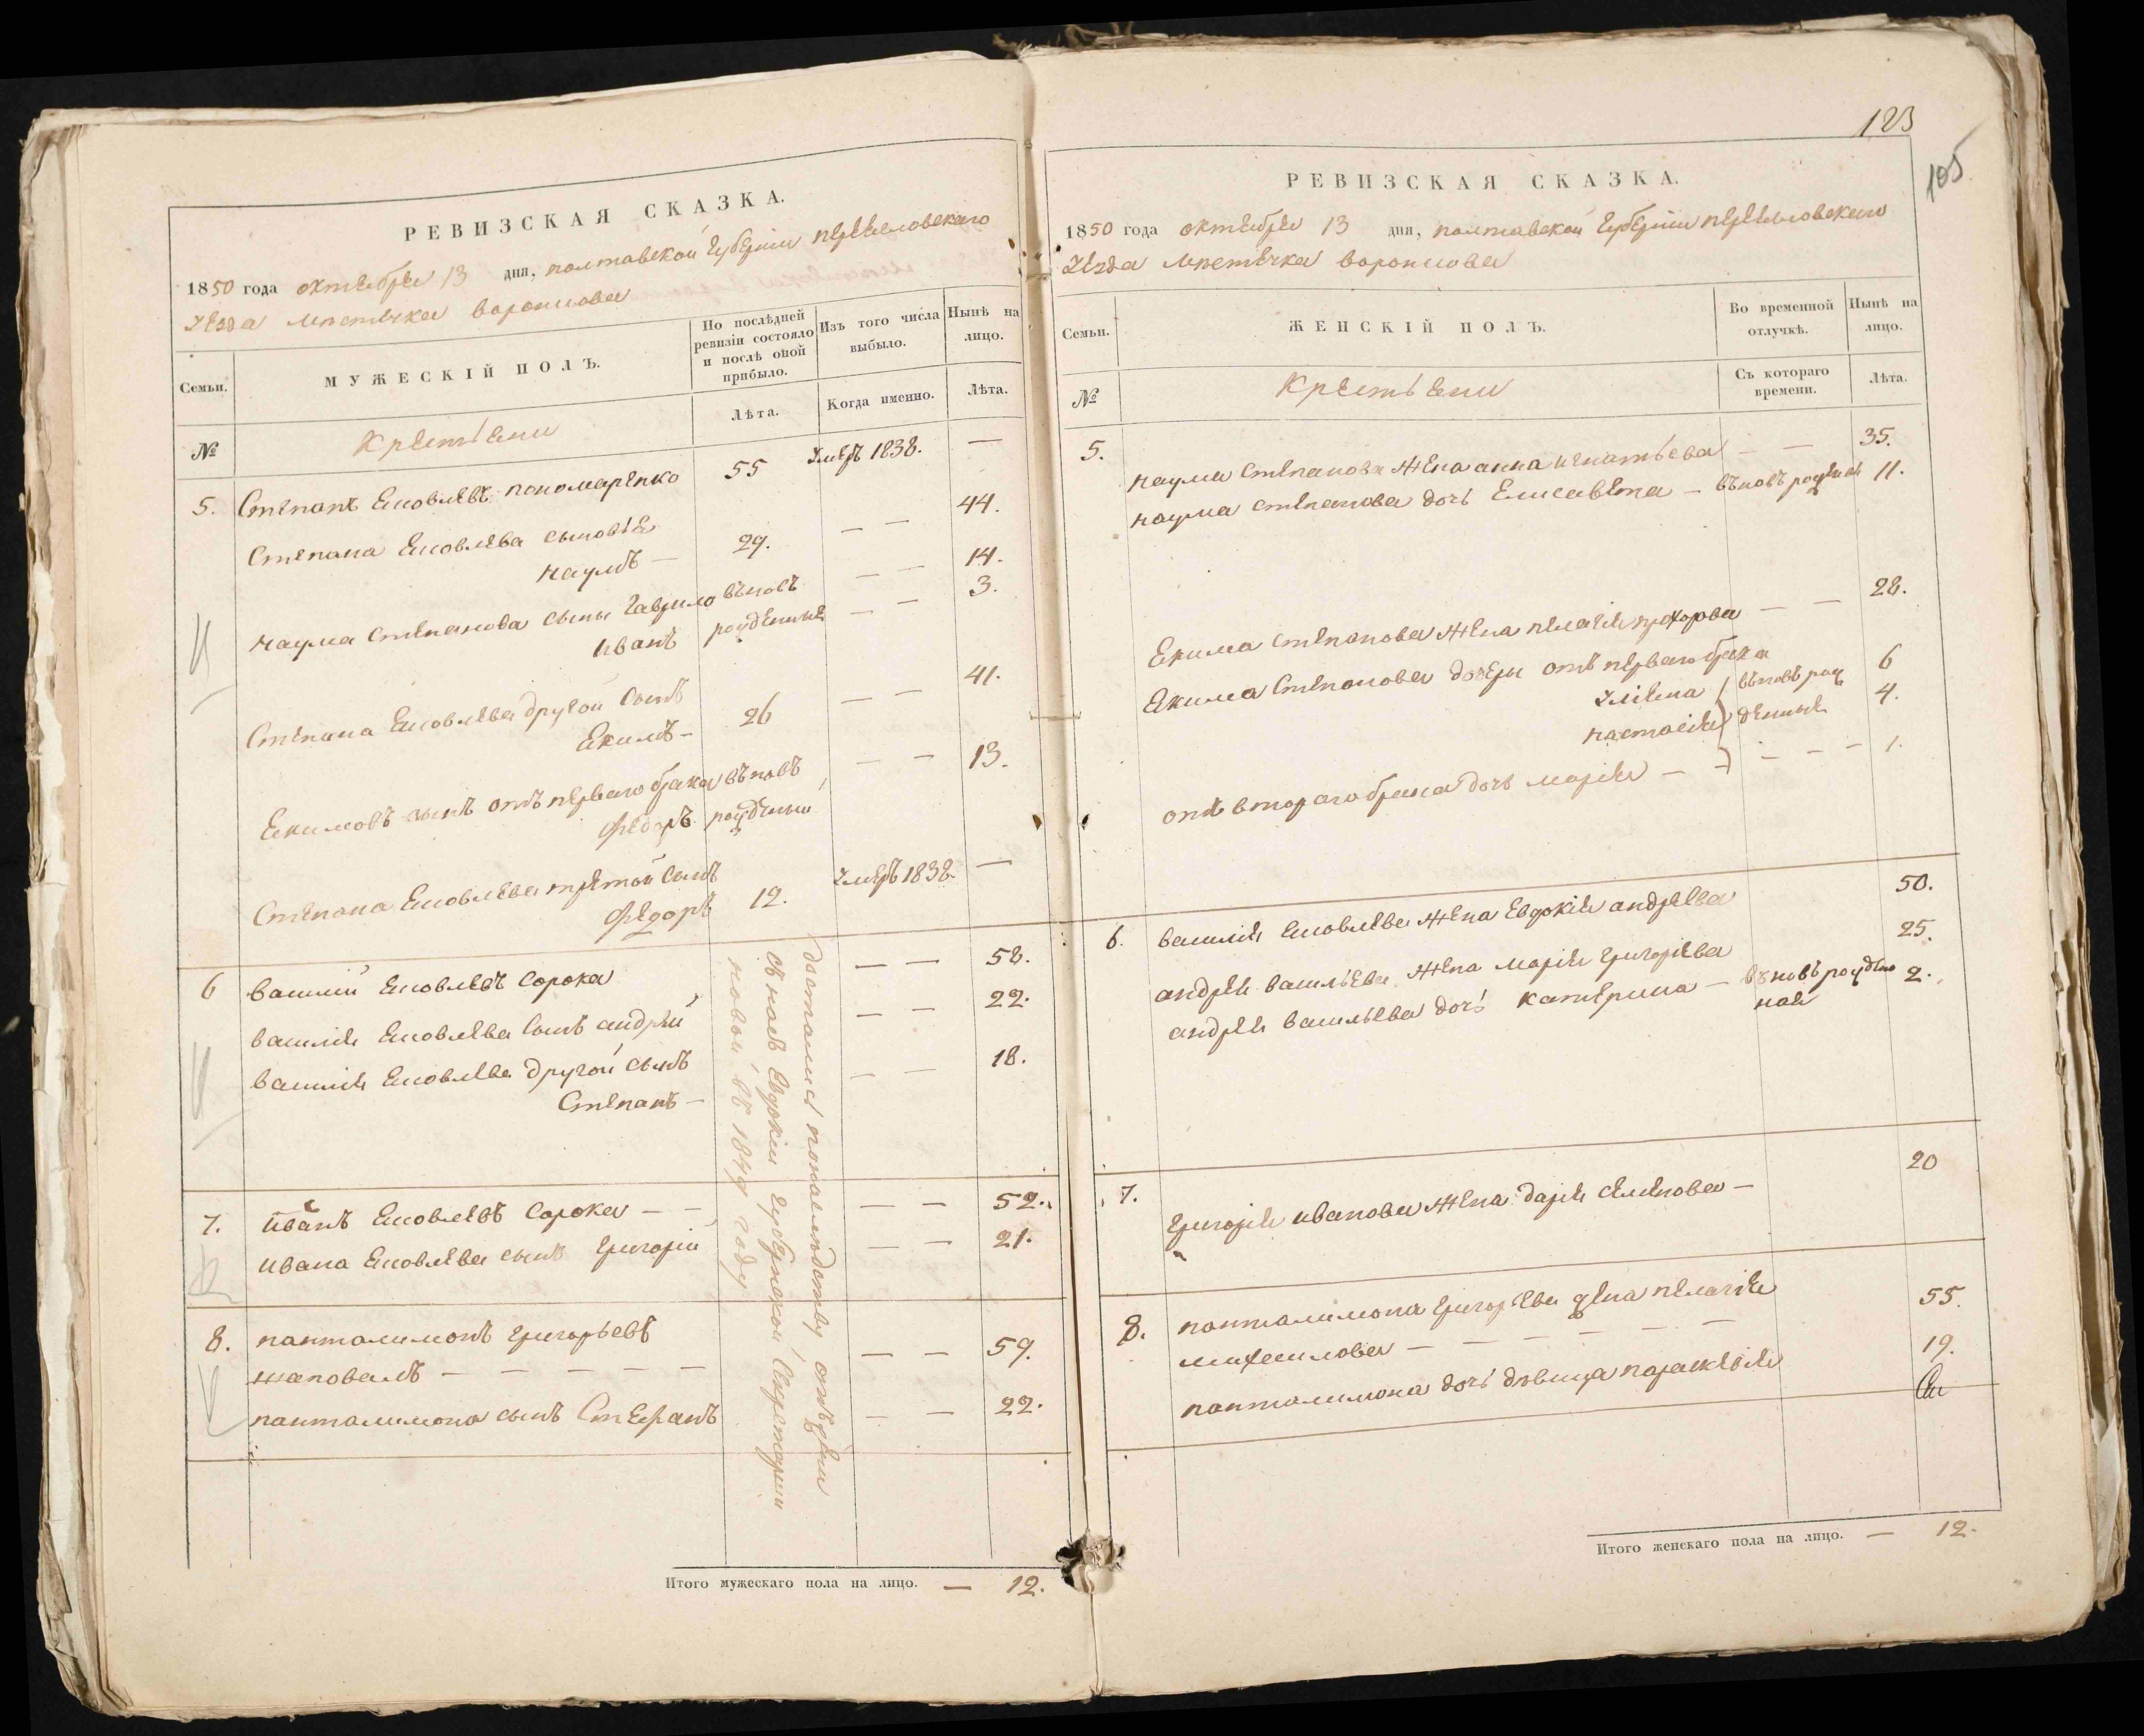 РЕВИЗСКАЯ СКАЗКА.
1850 года октября 13 дня, полтавской Губернии переяловского
Уезда местечка воронкова
Семьи.
МУЖЕСКІЙ ПОЛЪ.
По послѣдней ревизіи состояло и послѣ оной прибыло.
Изъ того числа выбыло.
Нынѣ на лицо.
Лѣта.
Когда именно.
Лѣта.
№
Крестьяни
5. Степанъ Яковлевъ пономаренко 55 Умеръ 1838. —
Степана Яковлева сыновья
Наумъ — 29. — — 44.
Наума Степанова сыны Гаврило въновь — — 14.
Иванъ рожденные — — 3.
Степана Яковлева другой Сынъ
Екимъ — 26 — — 41.
Екимовъ сынъ отъ перваго брака въновь — — 13.
Федоръ рожденый
Степана Яковлева третой Сынъ
Федоръ 12. Умеръ 1838. —
6 Василий Яковлевъ Сорока — — 58.
Василия Яковлева Сынъ андрей — — 22.
Василия Яковлева другой Сынъ — — 18.
Степанъ —
7. Иванъ Яковлевъ Сорока — — — — 52.
Ивана Яковлева сынъ Григорий — — 21.
8. панталимонъ Григорьевъ
шаповалъ — — — — — — — 59.
панталимона сынъ Стефанъ — — 22.
достались
Евдокии Губернской Секретарши
в 1849 году
Итого мужескаго пола на лицо. — 12.
123
105
РЕВИЗСКАЯ СКАЗКА.
1850 года октября 13 дня, полтавской Губернии переяловского
Уезда местечка воронкова
Семьи.
ЖЕНСКІЙ ПОЛЪ.
Во временной отлучкѣ.
Нынѣ на лицо.
Съ котораго времени.
Лѣта.
№
Крестьяни
5. Наума Степанова Жена анна игнатьева — — 35.
Наума степанова дочь Елисавета — вънобъ 11.
Екима степанова Жена пелагия прохорова — — 28.
Екима Степанова дочери отъ перваго брака
Улияна въновь рож 6
настасия денные 4.
отъ втораго брака дочь мария — — — — 1.
6. Василия Яковлева Жена Евдокия андреева 50.
андрея васильева Жена мария григориева 25.
андрея Васильева дочь катерина — вновь рожден 2.
ная
7. Григория иванова Жена дария семенова — 20
8. панталимона Григорьева жена пелагия
михаилова — — — — — — 55.
панталимона дочь девица параскевия 19.
Итого женскаго пола на лицо. — 12.